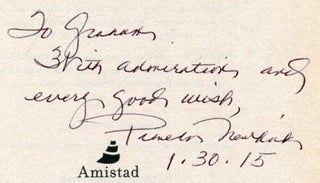 To Graham
With admiration and
every good wish,
Pamela Newkirk
1.30.15
Amistad